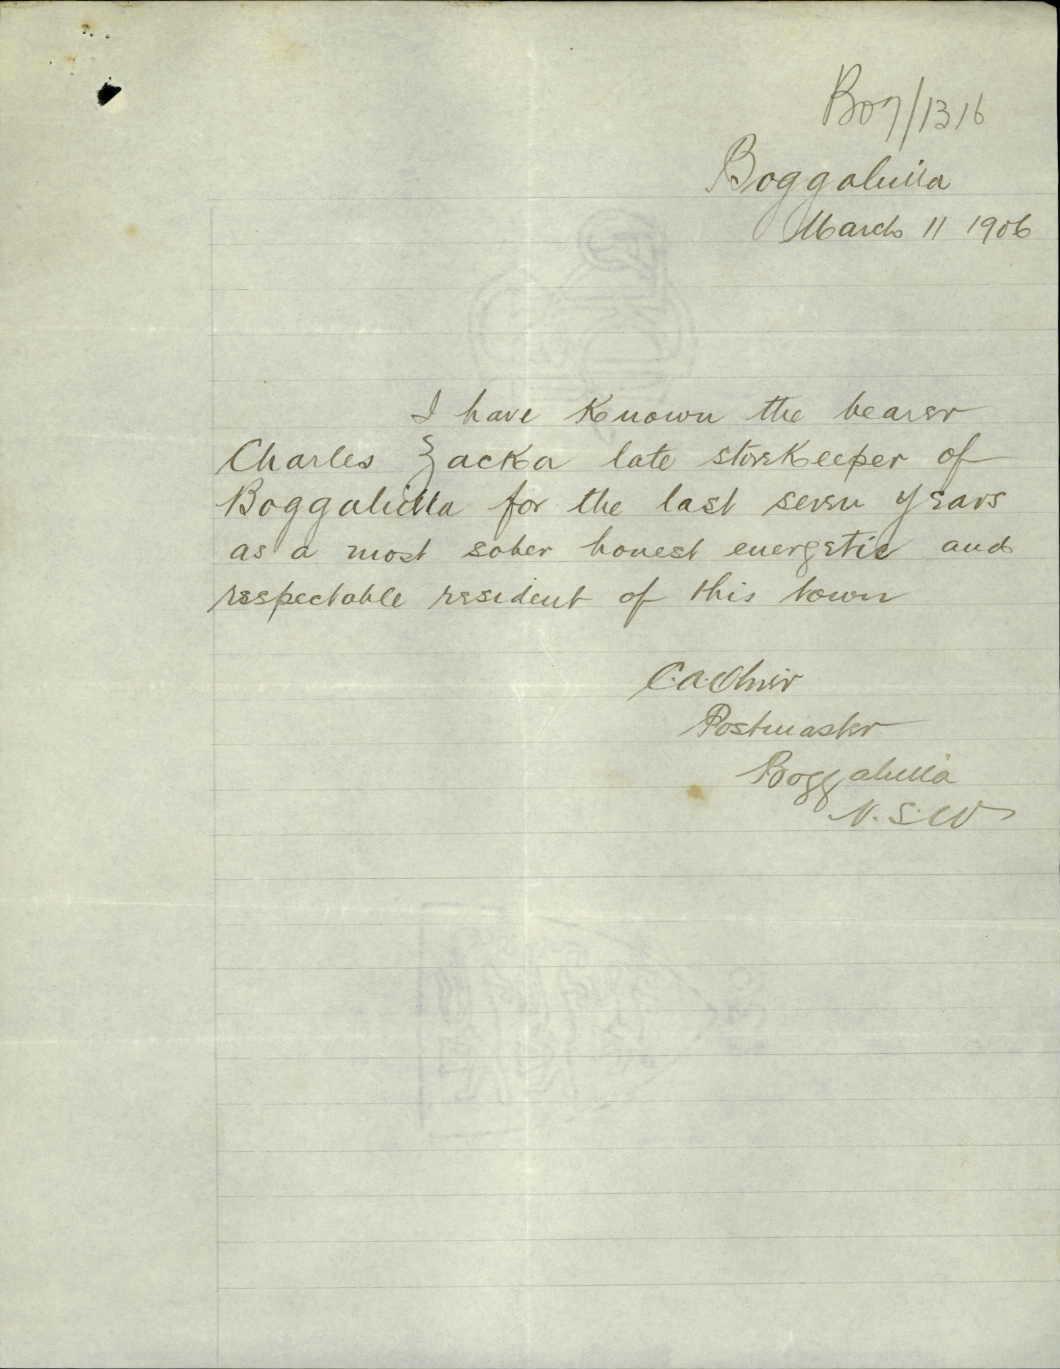 B07/1316
Boggabilla
March 11 1906
I have Known the bearer
Charles Zacka late storekeeper of
Boggabilla for the last seven years
as a most sober honest energetic and
respectable resident of this town
C. A.
Postmaster
Boggabilla
N. S. W